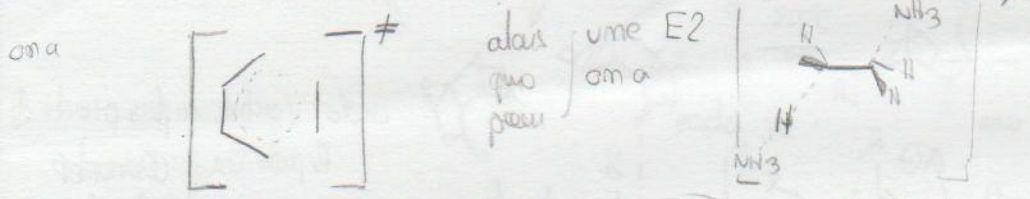 on a
≠
alors que pour
une E2 on a
NH3
H
H
H
H
NH3